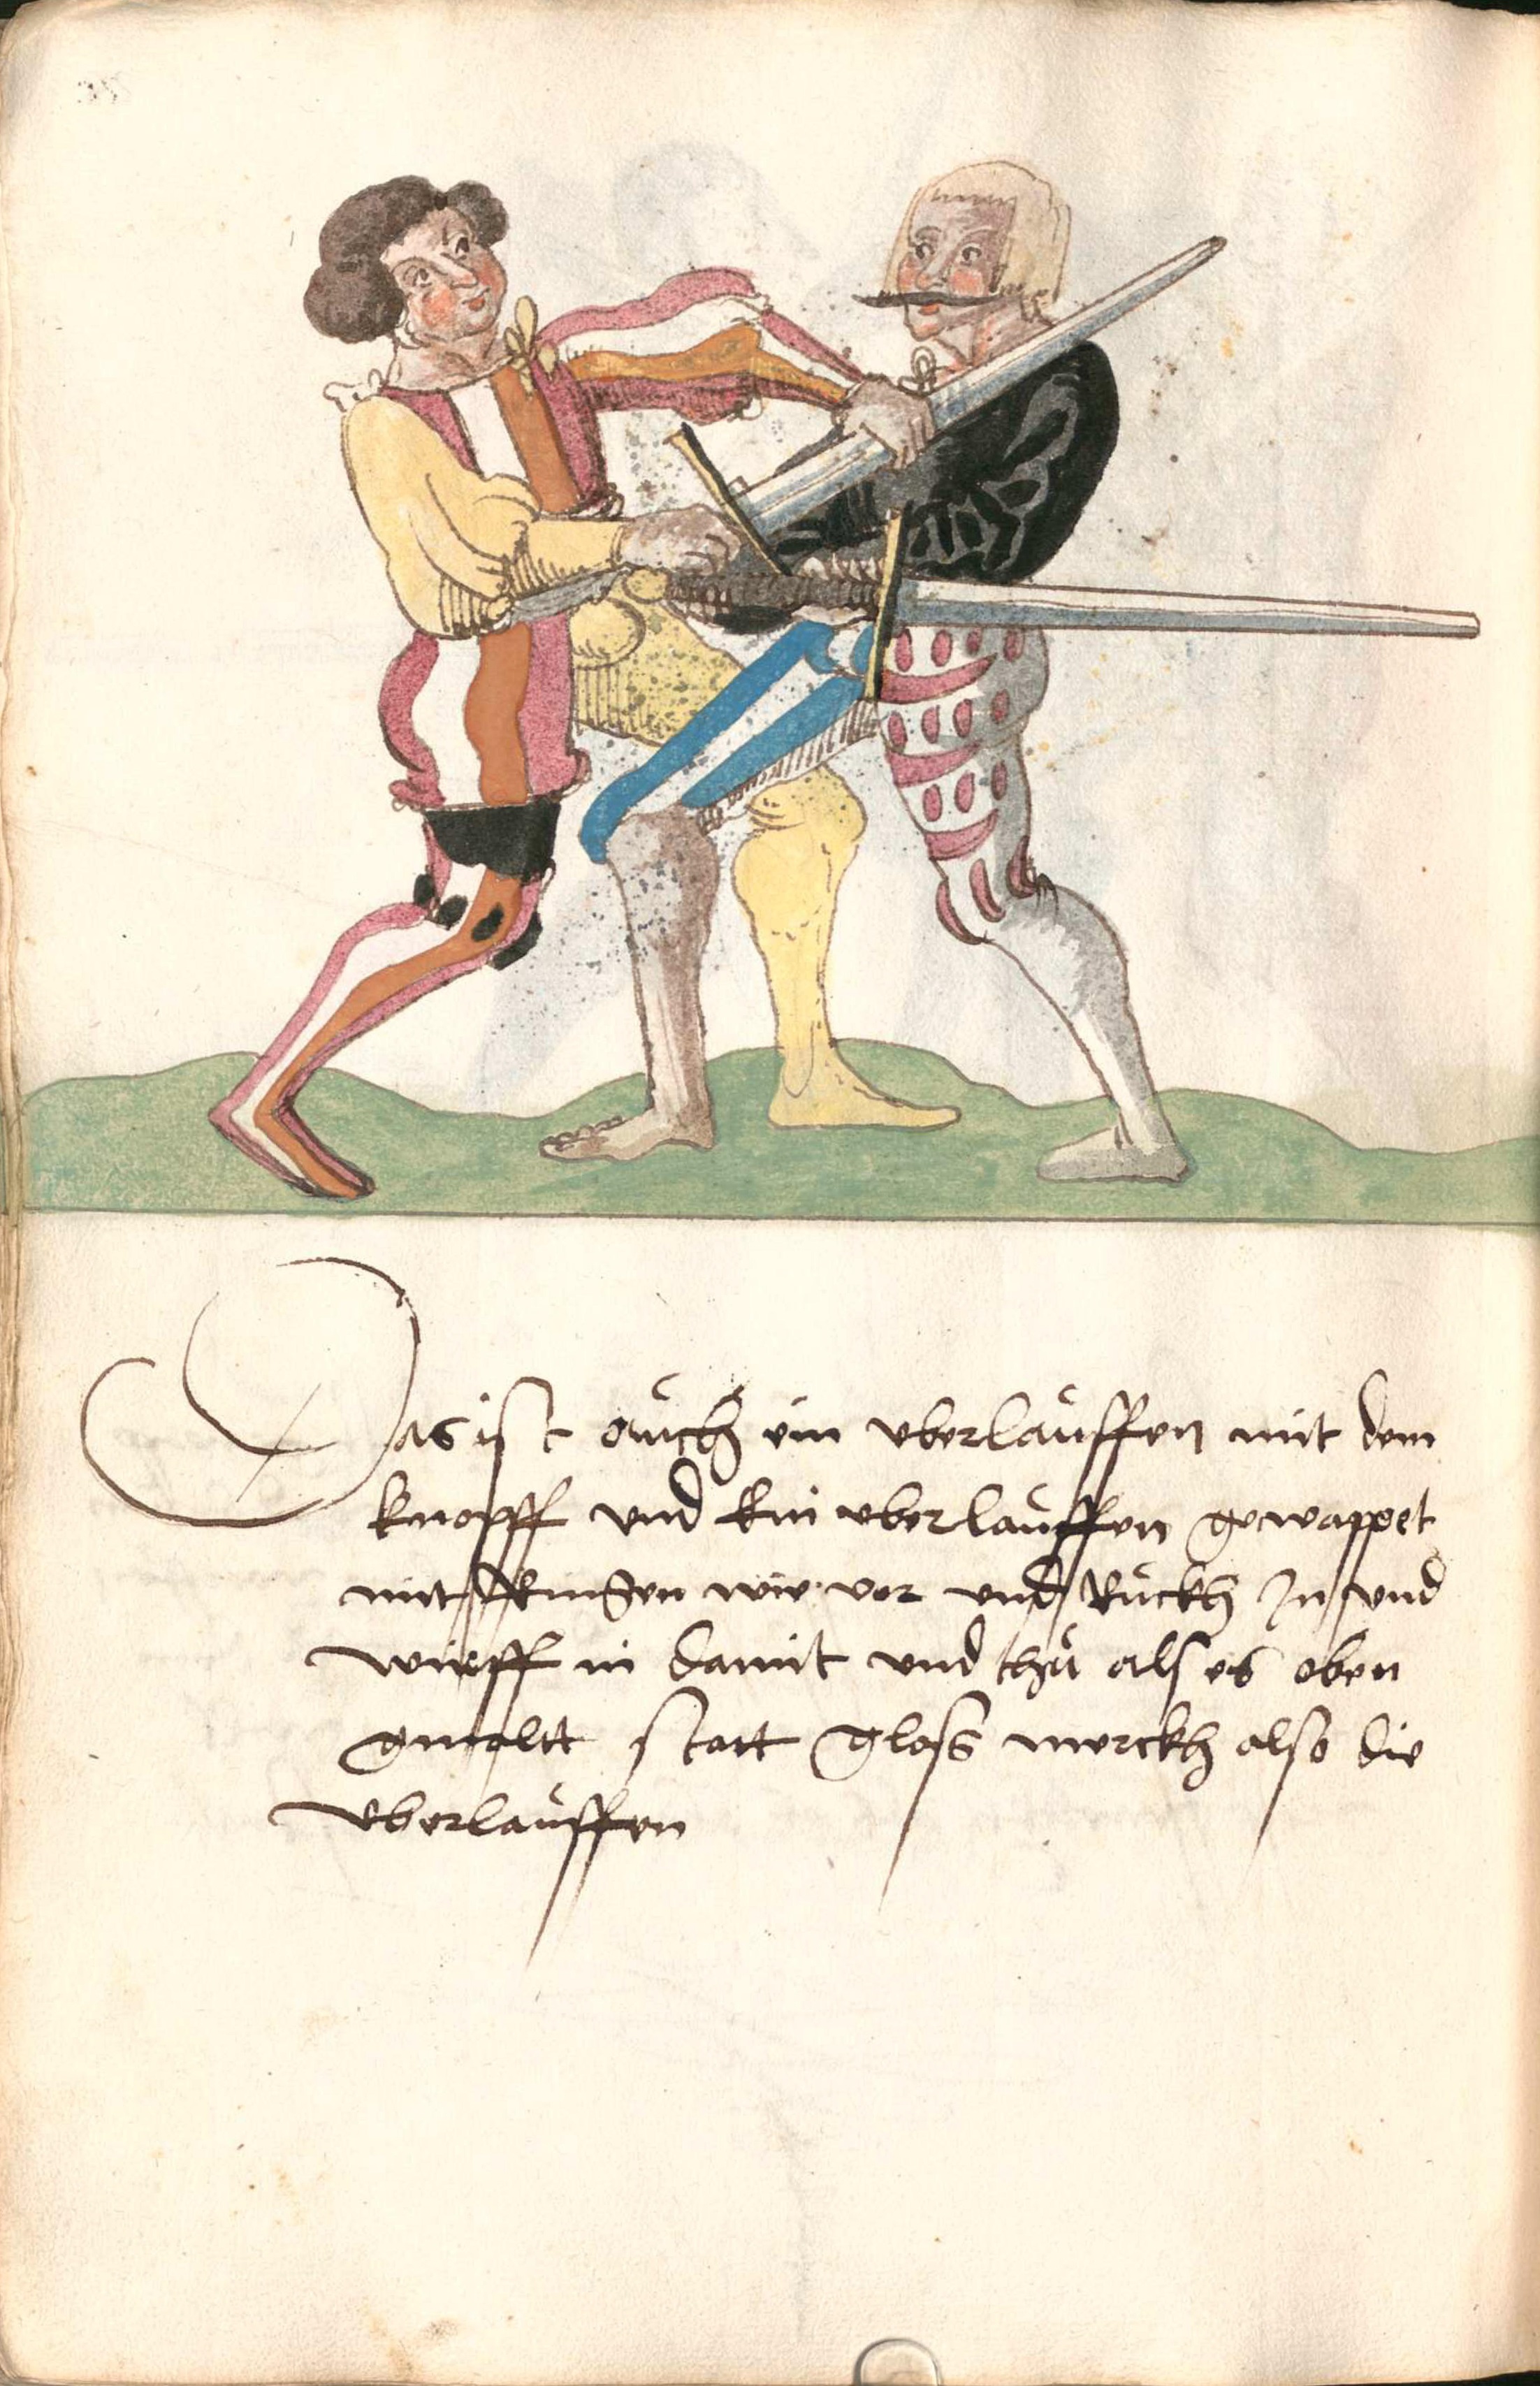 Das ist ouch ein uberlauffen mit dem
knopff vnd ein uberlauffen gewappet
mit Ringen wie vor vnd Ruckh In vnd
wirff in damit vnd thů als es oben
gmaltt statt gloss merckh also die
vberlauffen